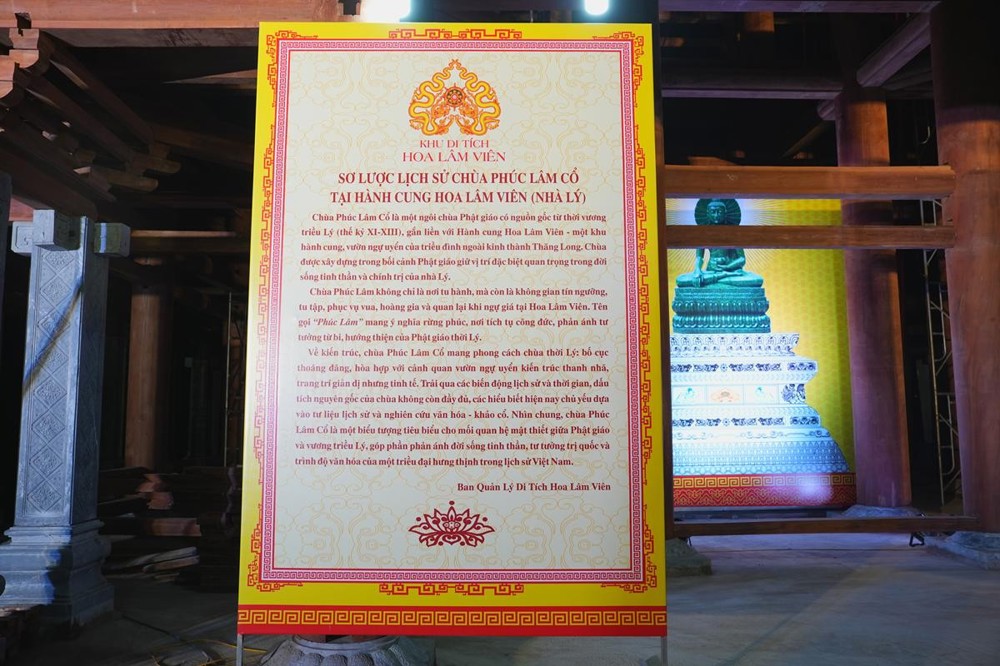 KHU DI TÍCH
HOA LÂM VIÊN
SƠ LƯỢC LỊCH SỬ CHÙA PHÚC LÂM CỔ
TẠI HÀNH CUNG HOA LÂM VIÊN (NHÀ LÝ)
Chùa Phúc Lâm Cổ là một ngôi chùa Phật giáo có nguồn gốc từ thời vương
triều Lý (thế kỷ XI-XIII), gắn liền với Hành cung Hoa Lâm Viên - một khu
hành cung, vườn ngự uyển của triều đình ngoài kinh thành Thăng Long. Chùa
được xây dựng trong bối cảnh Phật giáo giữ vị trí đặc biệt quan trọng trong đời
sống tinh thần và chính trị của nhà Lý.
Chùa Phúc Lâm không chỉ là nơi tu hành, mà còn là không gian tín ngưỡng,
tu tập, phục vụ vua, hoàng gia và quan lại khi ngự giá tại Hoa Lâm Viên. Tên
gọi “Phúc Lâm” mang ý nghĩa rừng phúc, nơi tích tụ công đức, phản ánh tư
tưởng từ bi, hướng thiện của Phật giáo thời Lý.
Về kiến trúc, chùa Phúc Lâm Cổ mang phong cách chùa thời Lý: bố cục
thoáng đãng, hòa hợp với cảnh quan vườn ngự uyển kiến trúc thanh nhã,
trang trí giản dị nhưng tinh tế. Trải qua các biến động lịch sử và thời gian, dấu
tích nguyên gốc của chùa không còn đầy đủ, các hiểu biết hiện nay chủ yếu dựa
vào tư liệu lịch sử và nghiên cứu văn hóa - khảo cổ. Nhìn chung, chùa Phúc
Lâm Cổ là một biểu tượng tiêu biểu cho mối quan hệ mật thiết giữa Phật giáo
và vương triều Lý, góp phần phản ánh đời sống tinh thần, tư tưởng trị quốc và
trình độ văn hóa của một triều đại hưng thịnh trong lịch sử Việt Nam.
Ban Quản Lý Di Tích Hoa Lâm Viên